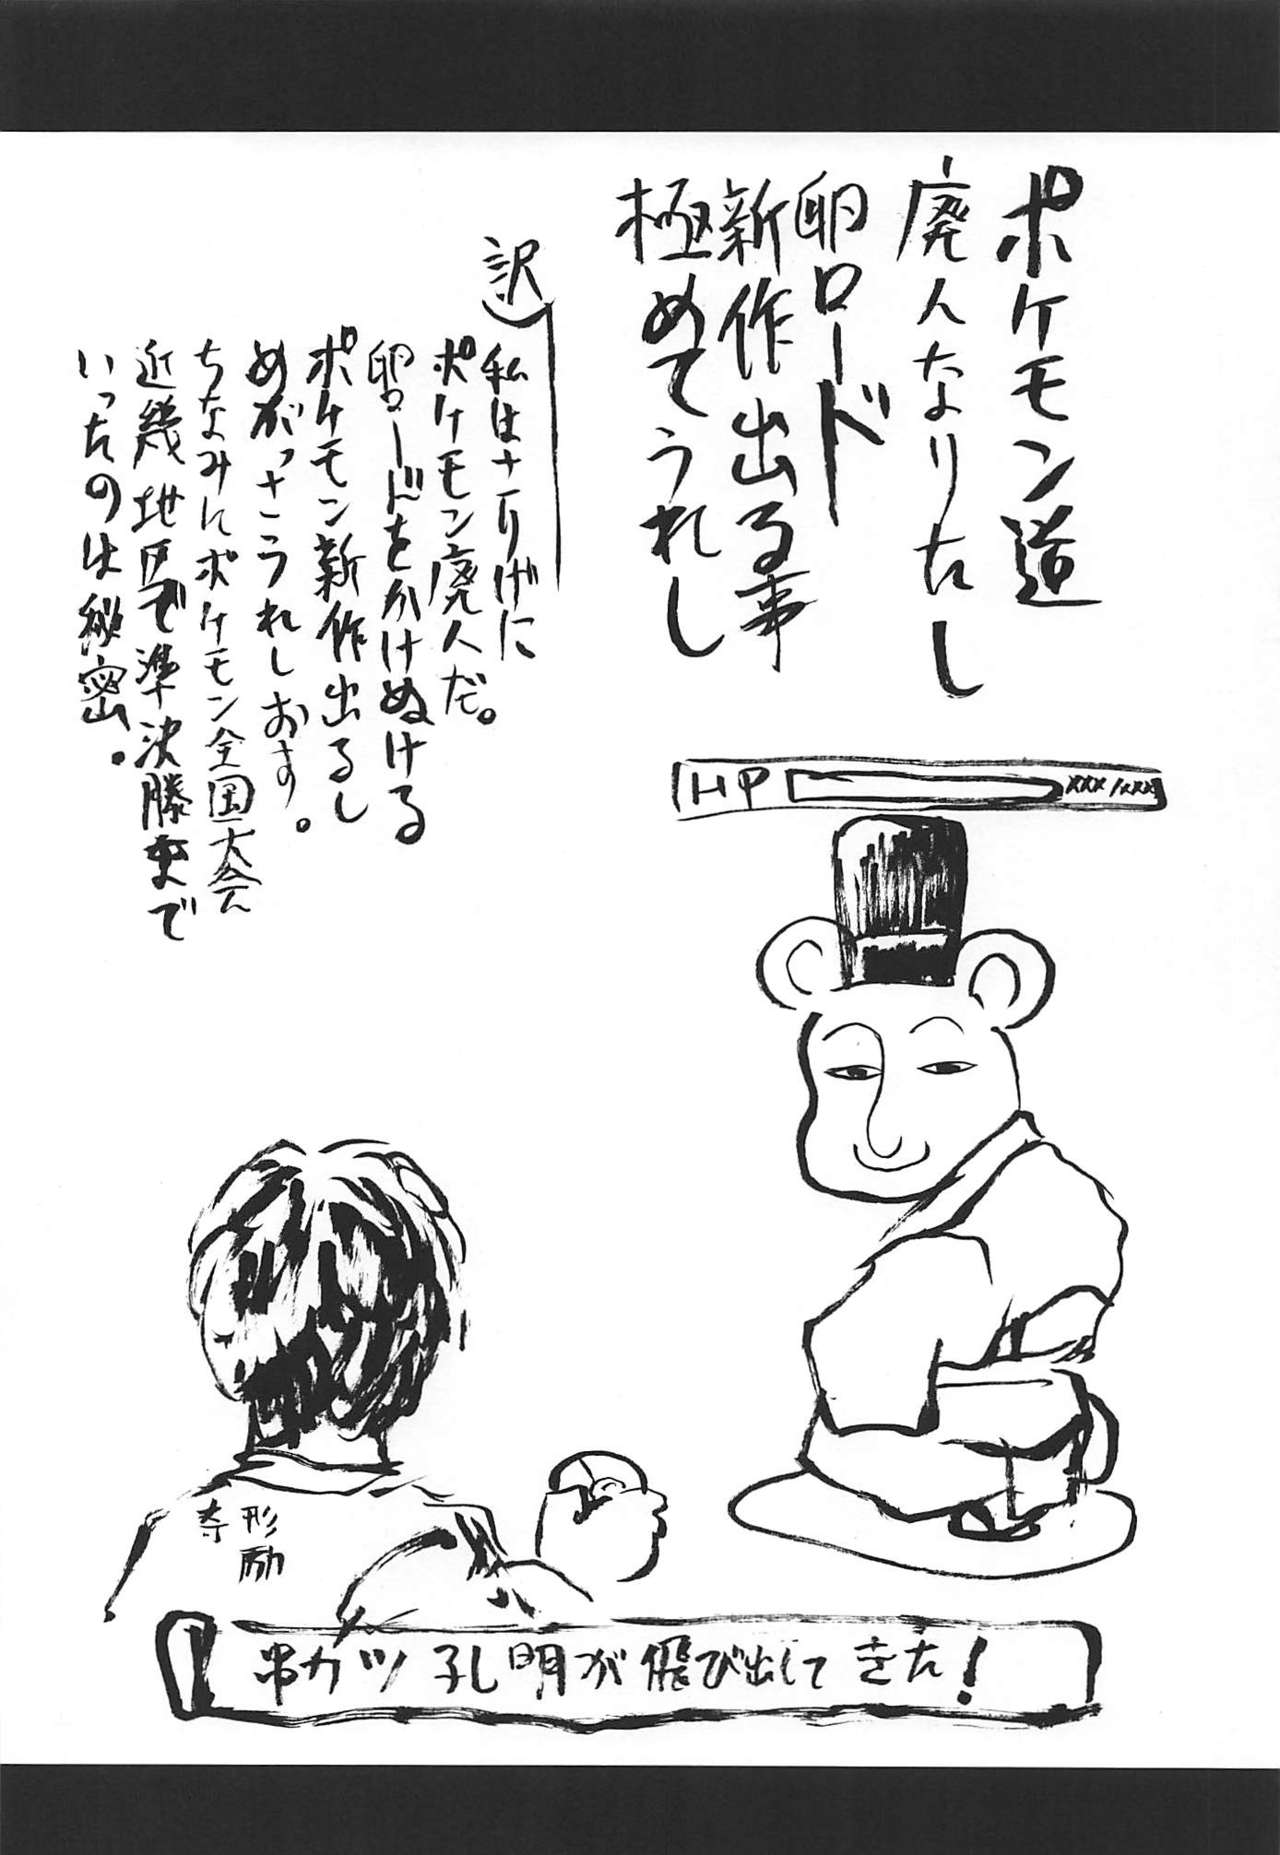 ポケモン道
廃人なりたし
卵ロード
新作出る事
極めてうれし
訳
私はさりげに
ポケモン廃人だ。
卵ロードをかけぬける
ポケモン新作出るし
めがっさうれしおす。
ちなみにポケモン全国大会
近畿地区で準決勝まで
いったのは秘密。
HP xxx/xxx
形励
奈
串カツ孔明が飛び出してきた!